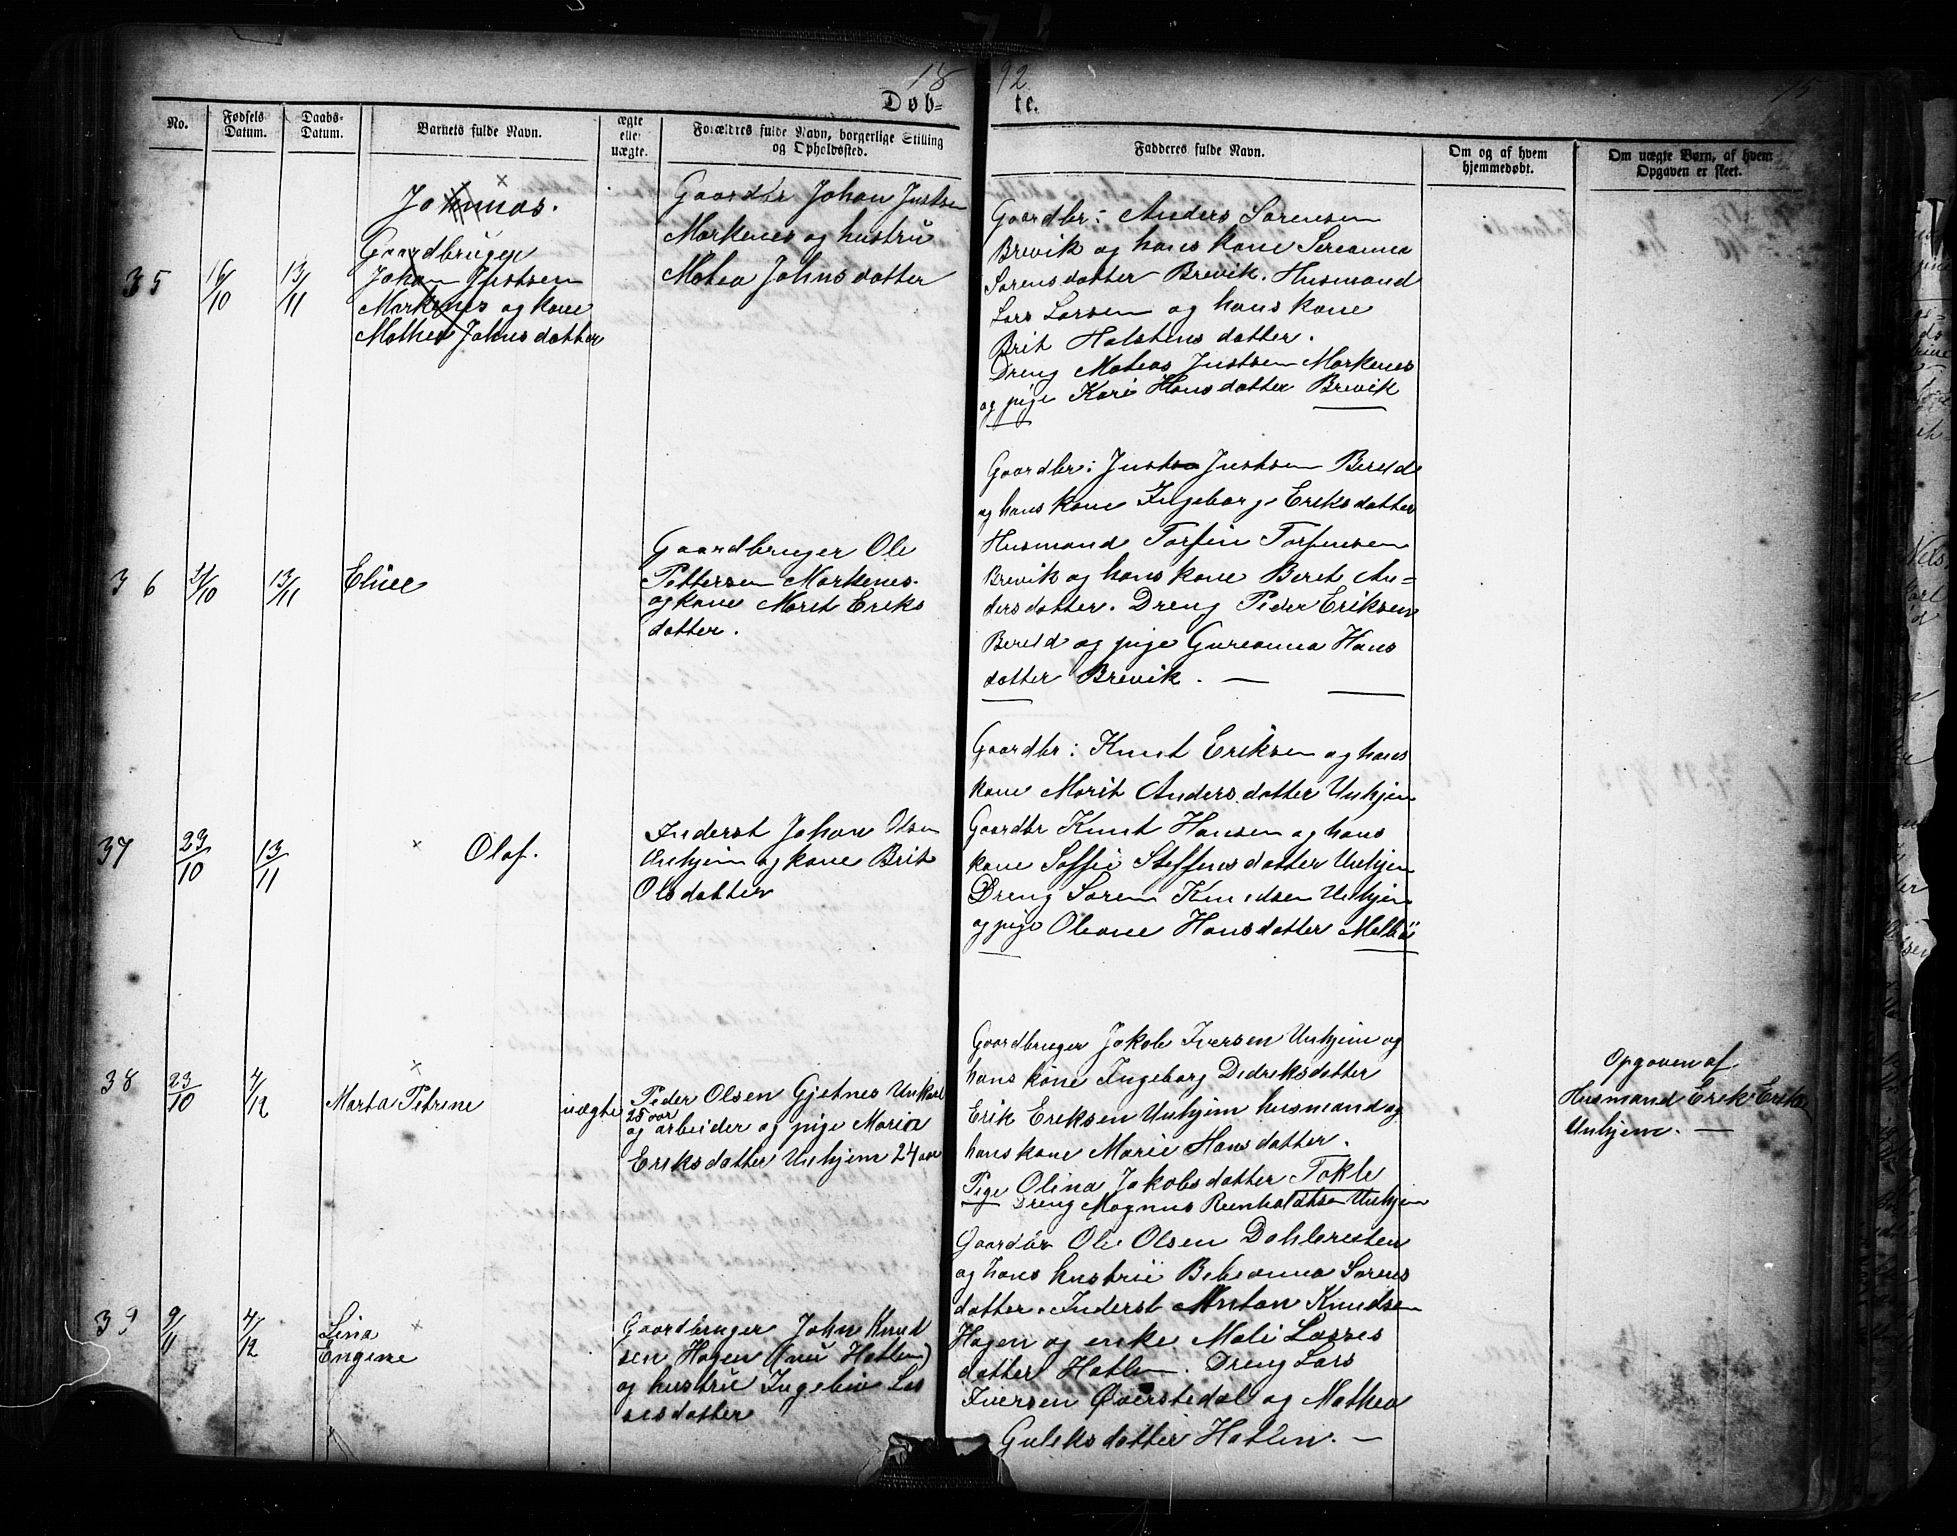 18 92
75
Døb- te.
No.
Fødsels Datum.
Daabs-Datum.
Barnets fulde Navn.
ægte eller uægte.
Forældres fulde Navn, borgerlige Stilling og Opholdssted.
Fadderes fulde Navn.
Om og af hvem hjemmedøbt.
Om uægte Børn, af hvem Opgaven er skeet.
35
16/10
13/11
Johannas.
Gaardbruger
Johan Justsen
Markenes og kone
Mathea Johnsdatter
Gaardbr Johan Justsen
Markenes og hustrü
Matea Johnsdatter
Gaardbr: Anders Sørensen
Brevik og hans kone Sereanna
Sørensdatter Brevik. Husmand
Lars Larsen og hans kone
Brit Halstensdatter.
Dreng Mateas Justsen Markenes
og pige Kari Hansdatter Brevik
36
21/10
13/11
Eline
Gaardbruger Ole
Pettersen Markenes.
og kone Marit Eriks
datter.
Gaardbr: Just Justsen Bereld
og hans kone Ingeborg Eriksdatter
Husmand Torfin Torfinsen
Brevik og hans kone Beret An-
dersdatter. Dreng Peder Eriksen
Bereld og pige Gureanna Hans
datter Brevik. —
37
23/10
13/11
Olaf.
Inderst Johan Olsen
Unhjem og kone Brit
Olsdatter
Gaardbr: Knut Eriksen og hans
kone Marit Andersdatter Unhjem
Gaardbr Knut Hansen og hans
kone Soffie Steffensdatter Unhjem
Dreng Søren Knudsen Unhjem
og pige Oleane Hansdatter Melbö
38
23/10
4/12
Marta Petrine
uægte
Peder Olsen Gjetnes Unkarl
25 aar
og arbeider og pige Maria
Eriksdatter Unhjem 24 aar
Gaardbruger Jakob Iversen Unhjem og
hans kone Ingeborg Didriksdatter
Erik Eriksen Unhjem husmand og
hans kone Marie Hansdatter.
Pige Olina Jakobsdatter Tokle
Dreng Magnus Reinholdtsen Unhjem
Opgaven af
Husmand Erik Eriks
Unhjem. —
39
9/11
4/12
Lina
Engine
Gaardbruger John Knud
sen Hagen (nu Hatlen)
og hustrü Ingebor Las
sesdatter
Gaardbr Ole Olsen Dahlbresten
og hans hustrü Beheanna Sørens
datter. Inderst Anton Knudsen
Hagen og enke Mali Lasses
datter Hatlen. Dreng Lars
Iversen Øverstedal og Mathea
Guleksdatter Hatlen. —